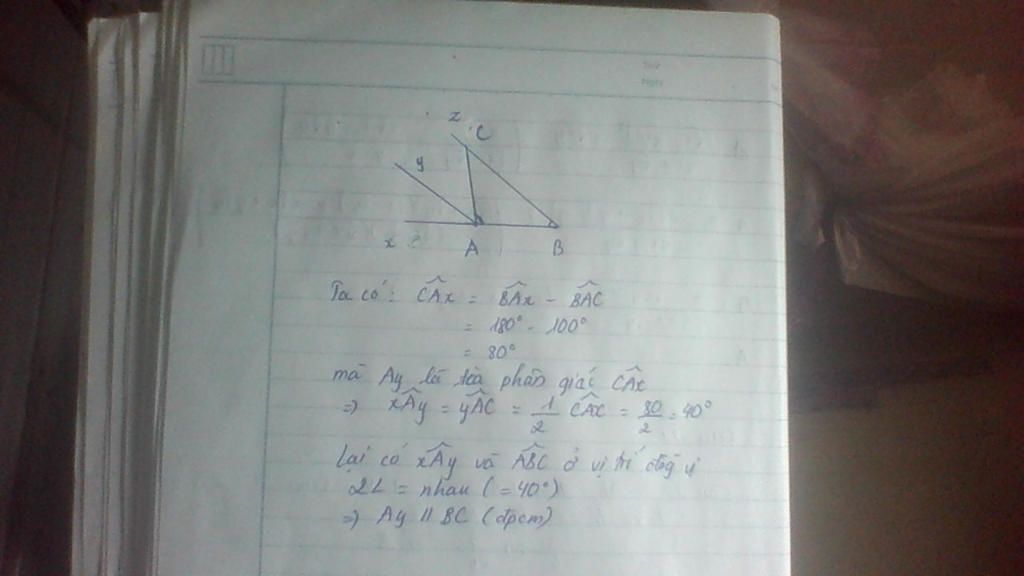 z
C
y
x
A
B
Ta có: CÂx = BÂx - BÂC
= 180° - 100°
= 80°
mà Ay là tia phân giác CÂx
=> xÂy = yÂC = 1/2 CÂx = 80/2 = 40°
Lại có xÂy và ABC ở vị trí đồg vị
2L = nhau ( = 40°)
=> Ay // BC (đpcm)